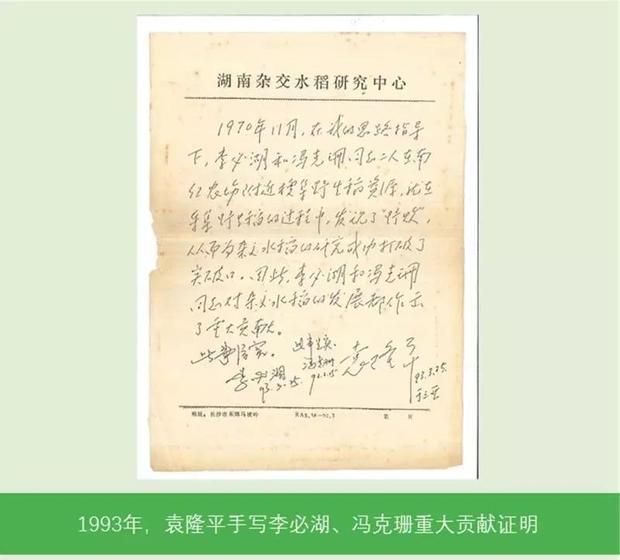 湖南杂交水稻研究中心
1970年11月，在我的思路指导
下，李必湖和冯克珊同志二人在南
红农场附近搜集野生稻资源，就在
采集野生稻的过程中，发现了“野败”，
从而为杂交水稻的研究成功打破了
突破口。因此，李必湖和冯克珊
同志对杂交水稻的发展都作出
了重大贡献。
此事属实。
李必湖
93.3.25.
冯克珊
袁隆平
93.3.25.
于三亚
地址：长沙市东郊马坡岭
第 页
1993年，袁隆平手写李必湖、冯克珊重大贡献证明